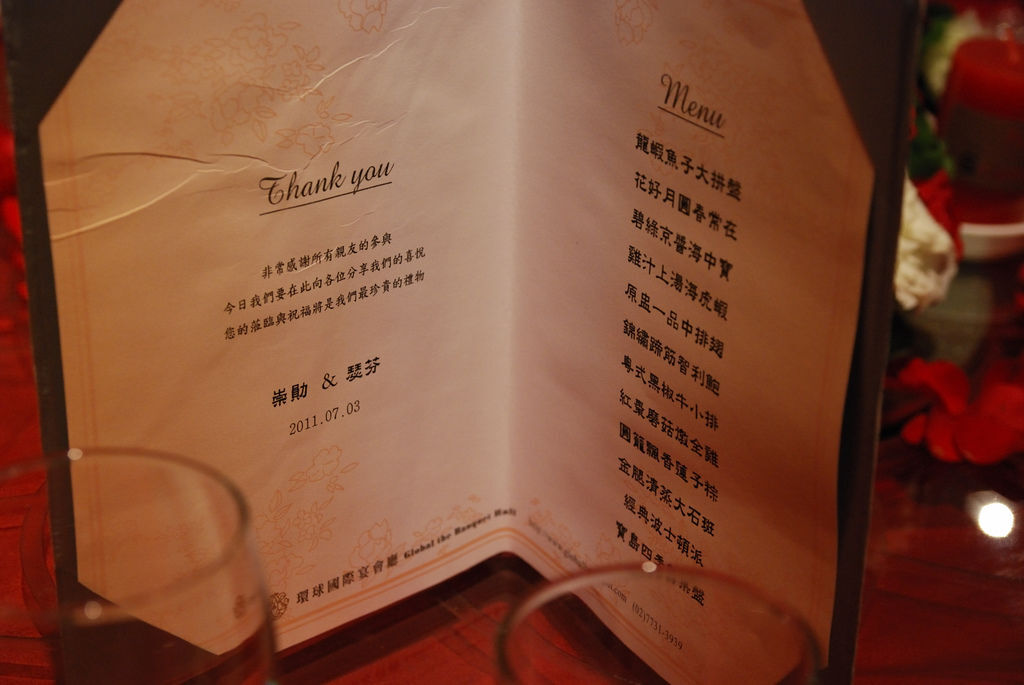 Thank you
非常感謝所有親友的參與
今日我們要在此向各位分享我們的喜悅
您的蒞臨與祝福將是我們最珍貴的禮物
崇勛 & 瑟芬
2011.07.03
環球國際宴會廳 Global the Banquet Hall
Menu
龍蝦魚子大拼盤
花好月圓春常在
碧綠京醬海中寶
雞汁上湯海虎蝦
原盅一品中排翅
錦繡蹄筋智利鮑
粵式黑椒牛小排
紅棗磨菇燉全雞
圓籠飄香蓮子粽
金腿清蒸大石斑
經典波士頓派
寶島四季 果盤
(02)7731-3939